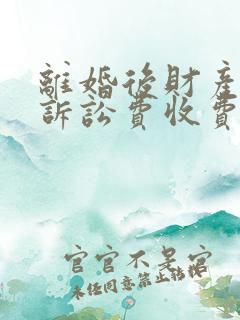 離婚後財產
訴訟費收費
官官不是官
未任同意禁止轉㧓